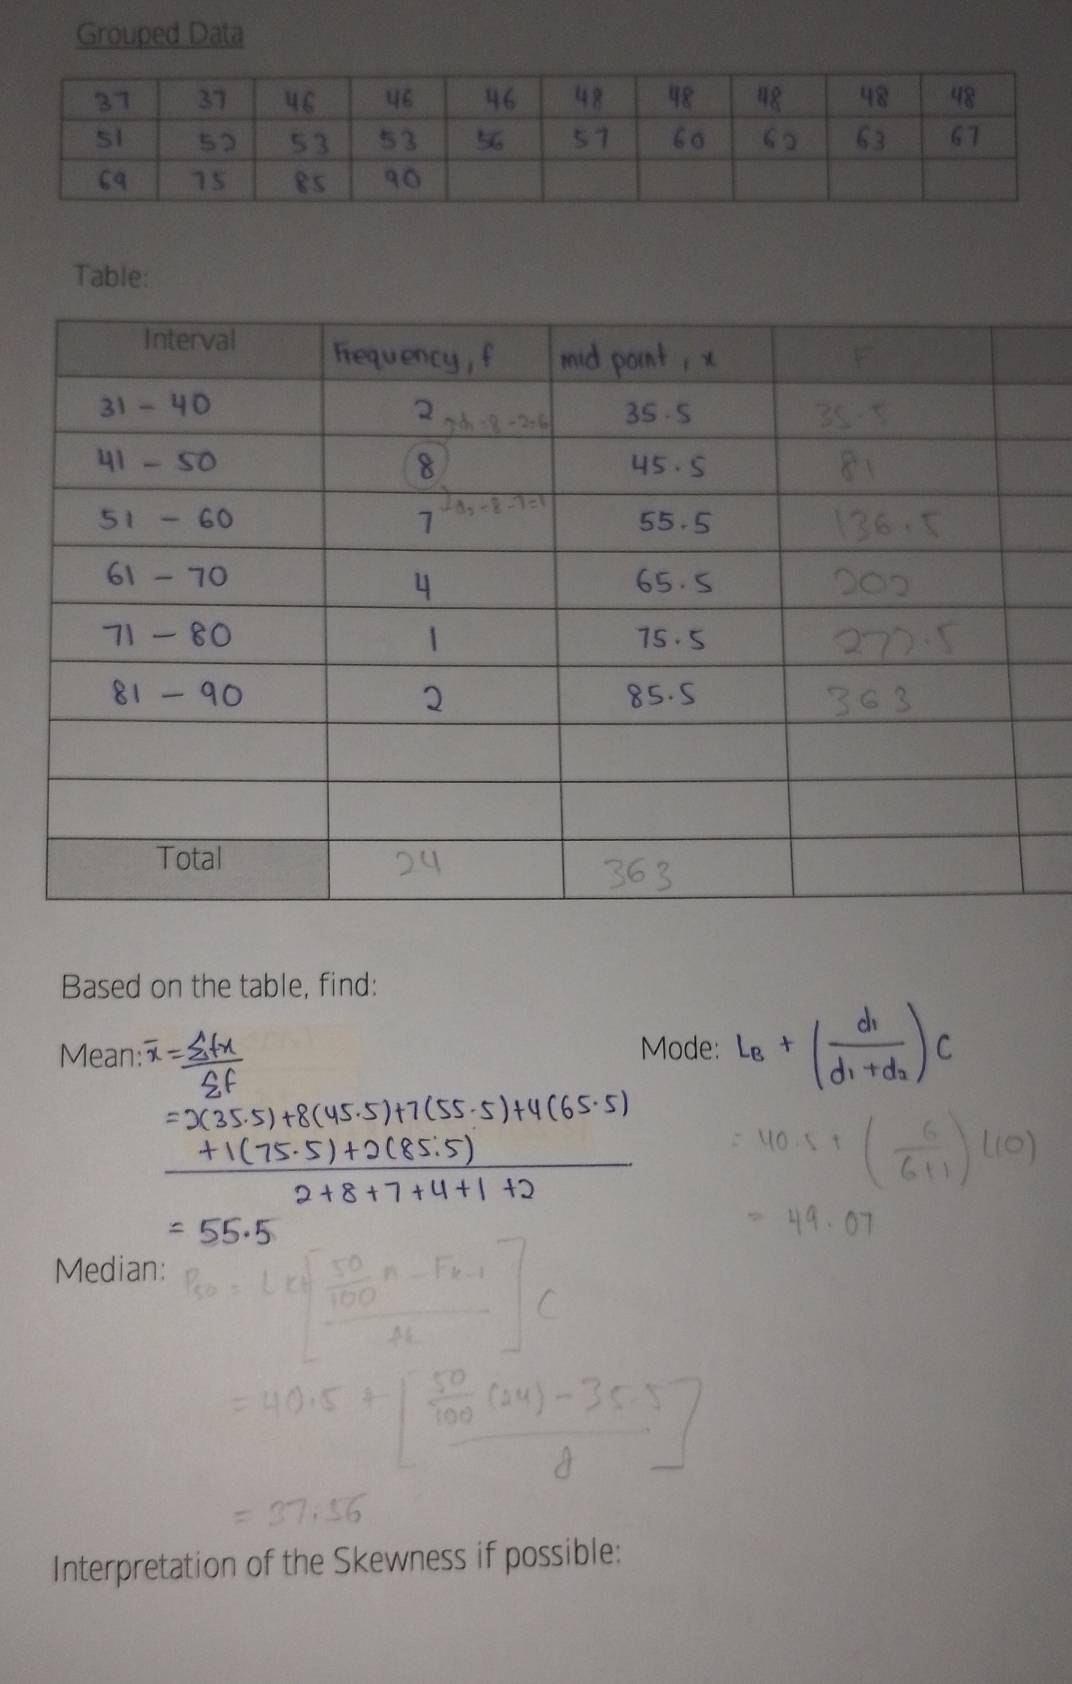 Grouped Data
37 37 46 46 46 48 48 48 48 48
51 52 53 53 56 57 60 62 63 67
69 75 85 90
Table:
Interval Frequency, f mid point, x F
31 - 40 2 d₁ = 8 - 2 = 6 35.5 35.5
41 - 50 8 45.5 81
51 - 60 7 d₂ = 8 - 7 = 1 55.5 136.5
61 - 70 4 65.5 202
71 - 80 1 75.5 277.5
81 - 90 2 85.5 363
Total 24 363
Based on the table, find:
Mean: x̄ = Σfx / Σf
= 2(35.5) + 8(45.5) + 7(55.5) + 4(65.5)
+ 1(75.5) + 2(85.5)
2 + 8 + 7 + 4 + 1 + 2
= 55.5
Mode: L_B + (d₁ / d₁ + d₂) C
= 40.5 + (6 / 6 + 1) (10)
= 49.07
Median: P₅₀ = Lk + [50/100 n - Fk-1 / fk] C
= 40.5 + [50/100 (24) - 35.5 / 8]
= 37.56
Interpretation of the Skewness if possible: